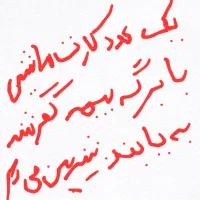 یک عدد کارت ماشین
با برگه بیمه گم شده
به یابنده شیرینی می دم